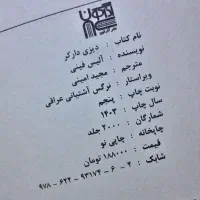 نام کتاب : دیزی دارکر
نویسنده : آلیس فینی
مترجم : مجید امینی
ویراستار : نرگس آشتیانی عراقی
نوبت چاپ : پنجم
سال چاپ : ۱۴۰۳
شمارگان : ۲۰۰۰ جلد
چاپخانه : چاپی نو
قیمت : ۱۸۸۰۰۰ تومان
شابک : ۴ - ۶ - ۹۳۱۷۴ - ۶۲۲ - ۹۷۸